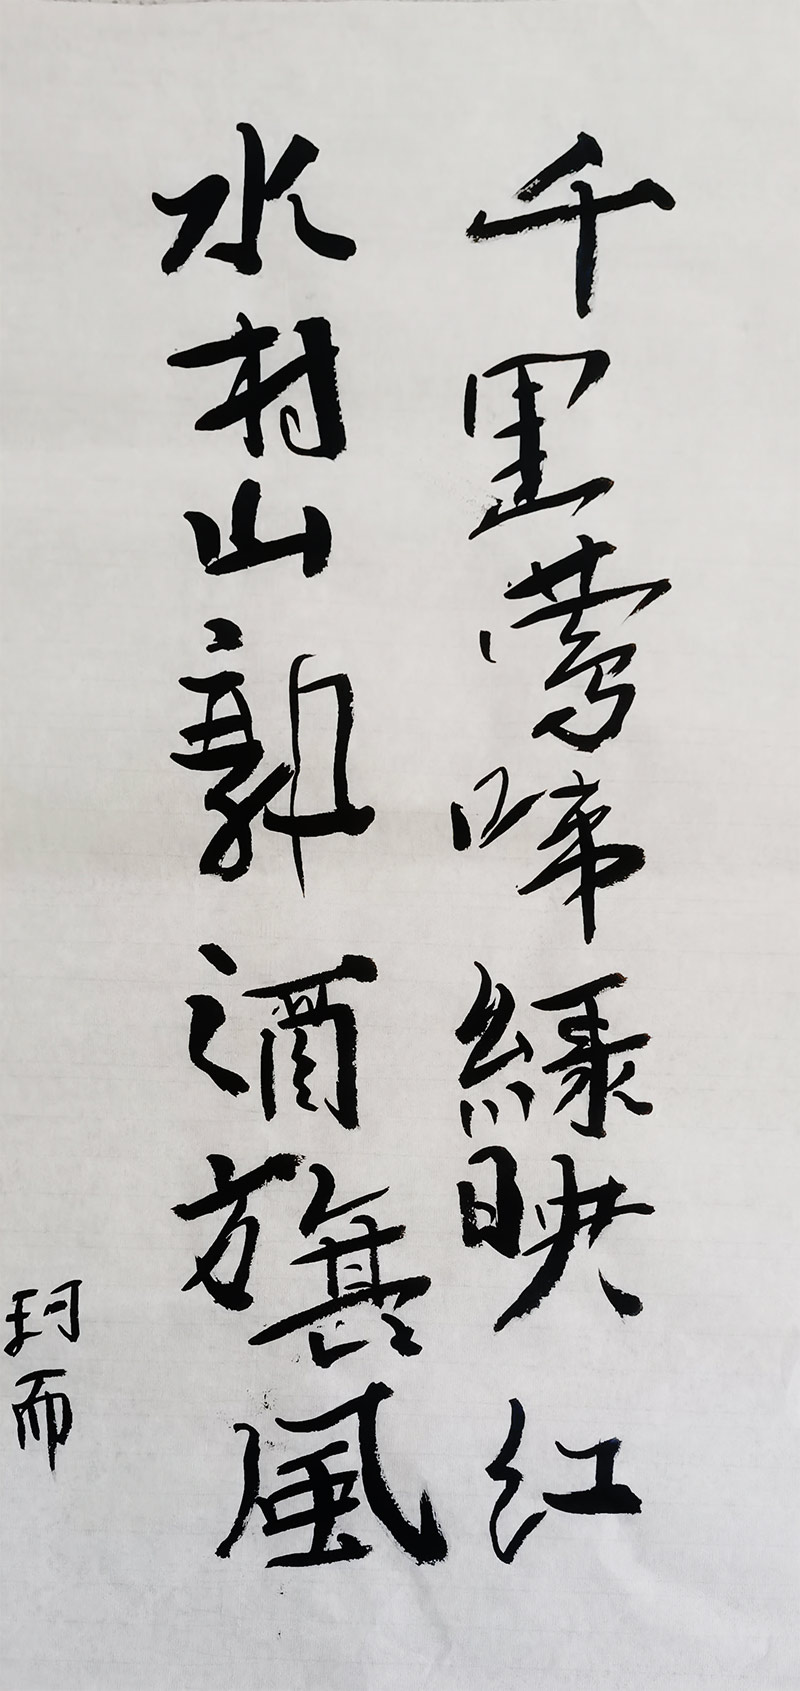 千里莺啼绿映红
水村山郭酒旗風
珂而